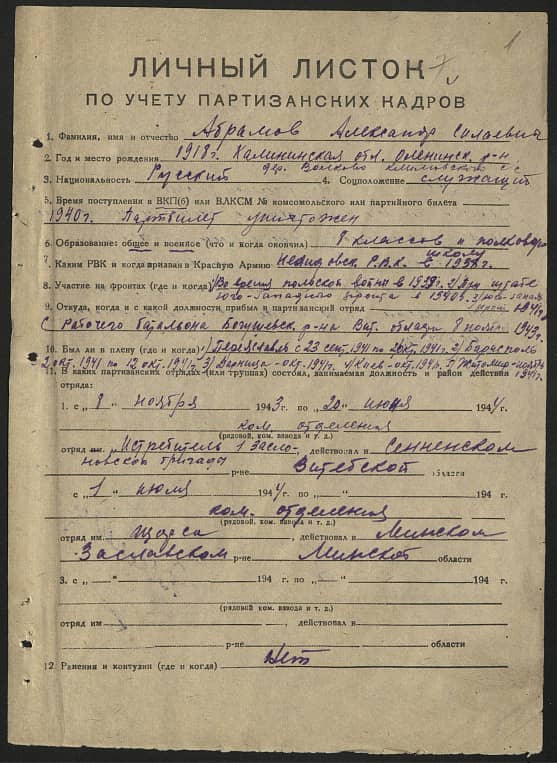 1
ЛИЧНЫЙ ЛИСТОК
ПО УЧЕТУ ПАРТИЗАНСКИХ КАДРОВ
1. Фамилия, имя и отчество Абрамов Александр
2. Год и место рождения 1918г. Калининская обл. Оленинск. р-н
дер. Волково с/с
3. Национальность Русский 4. Соцположение служащий
5. Время поступления в ВКП(б) или ВЛКСМ № комсомольского или партийного билета
1940г. Партбилет уничтожен
6. Образование: общее и военное (что и когда окончил) 8 классов и полковую
школу
7. Каким РВК и когда призван в Красную Армию Р.В.К. в 1938г.
8. Участие на фронтах (где и когда) Во время польской войны в 1939г. 2) При штабе
Юго-Западного фронта в
9. Откуда, когда и с какой должности прибыл в партизанский отряд
С Рабочего батальона Богушевск. р-на Вит. области 8 ноября 1943г.
10. Был ли в плену (где и когда) Переяславль с 23 сент. 1941 по 1941г. 2) Барисполь
2 окт. 1941 по 12 окт. 1941г. 3) Дарница - окт. 1941г. 4) Киев - окт. 1941г. 5) Житомир - ноябрь
1941г.
11. В каких партизанских отрядах (или группах) состоял, занимаемая должность и район действия
отряда:
1. с „8 " ноября 1943 г. по „20" июня 1944 г.
ком. отделения
(рядовой, ком. взвода и т. д.)
отряд им. Истребитель 1 Засло-, действовал в Сенненском
новской бригады р-не Витебской области
с „1 " июля 1944 г. по „ " 194 г.
ком. отделения
(рядовой, ком. взвода и т. д.)
отряд им. Щорса, действовал в Минском
Заславском р-не Минской области
3. с „ " 194 г. по „ " 194 г.
(рядовой, ком. взвода и т. д.)
отряд им , действовал в
р-не области
12. Ранения и контузии (где и когда) Нет